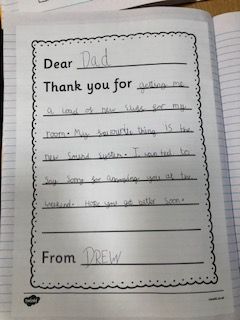 Dear Dad
Thank you for getting me
a load of new stuff for my
room. My favourite thing is the
new sound system. I wanted to
say sorry for annoying you at the
weekend. Hope you get better soon.
From DREW
twinkl